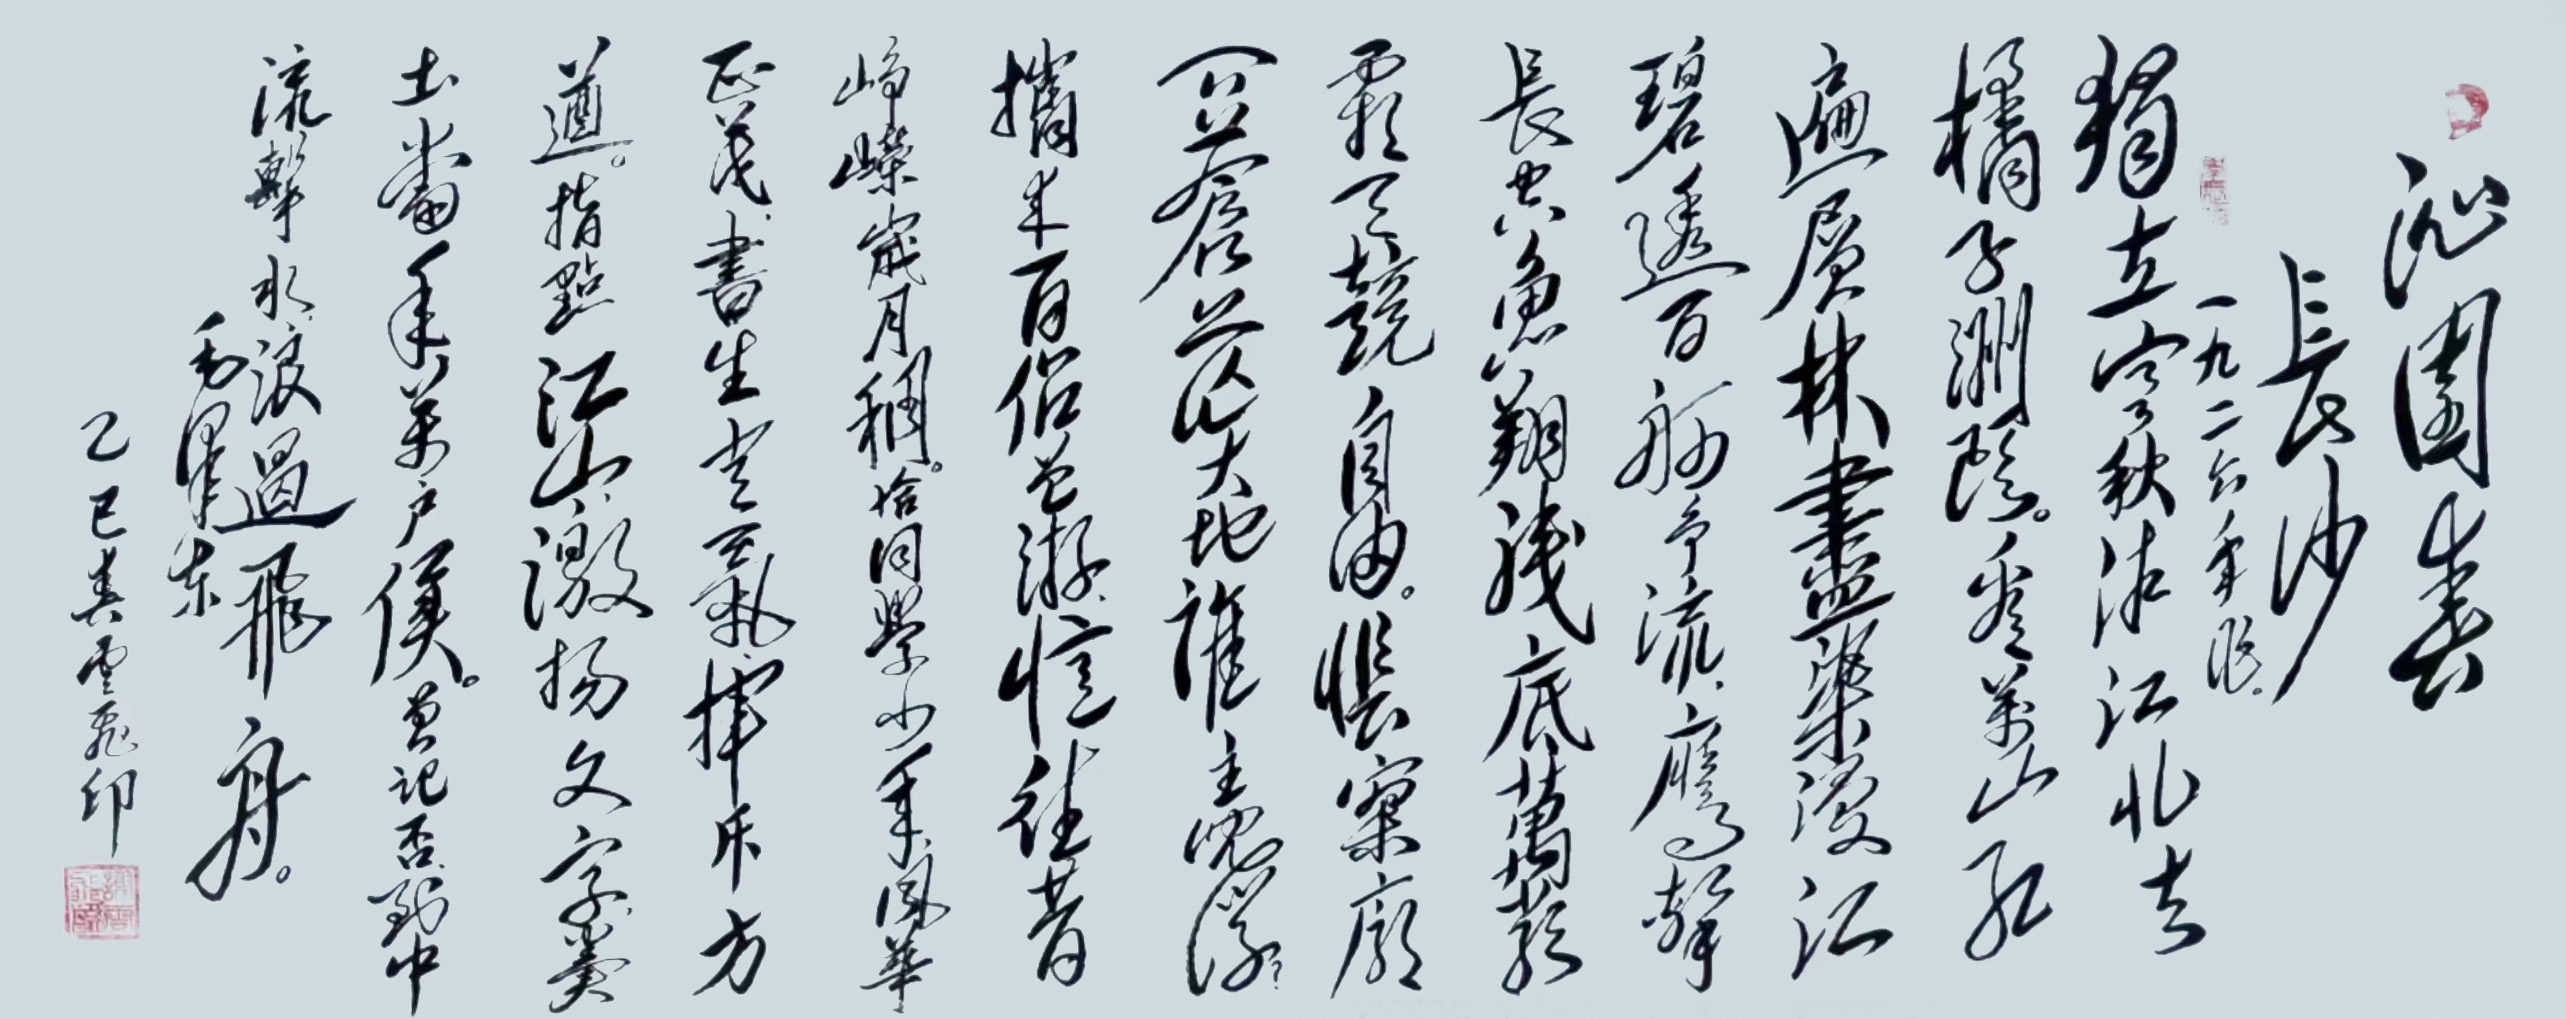 沁園春
長沙
一九二六年作。
獨立寒秋湘江北去
橘子洲頭。看萬山紅
遍層林盡染漫江
碧透百舸爭流、鷹擊
長空魚翔淺底萬類
霜天競自由。悵寥廓
問蒼茫大地誰主沉浮?
攜來百侶曾游、憶往昔
崢嶸歲月稠。恰同學少年、風華
正茂、書生意氣、揮斥方
遒。指點江山、激揚文字、糞
土當年萬戶侯。曾記否、到中
流擊水、浪遏飛舟。
毛澤東
乙巳春雲飛印